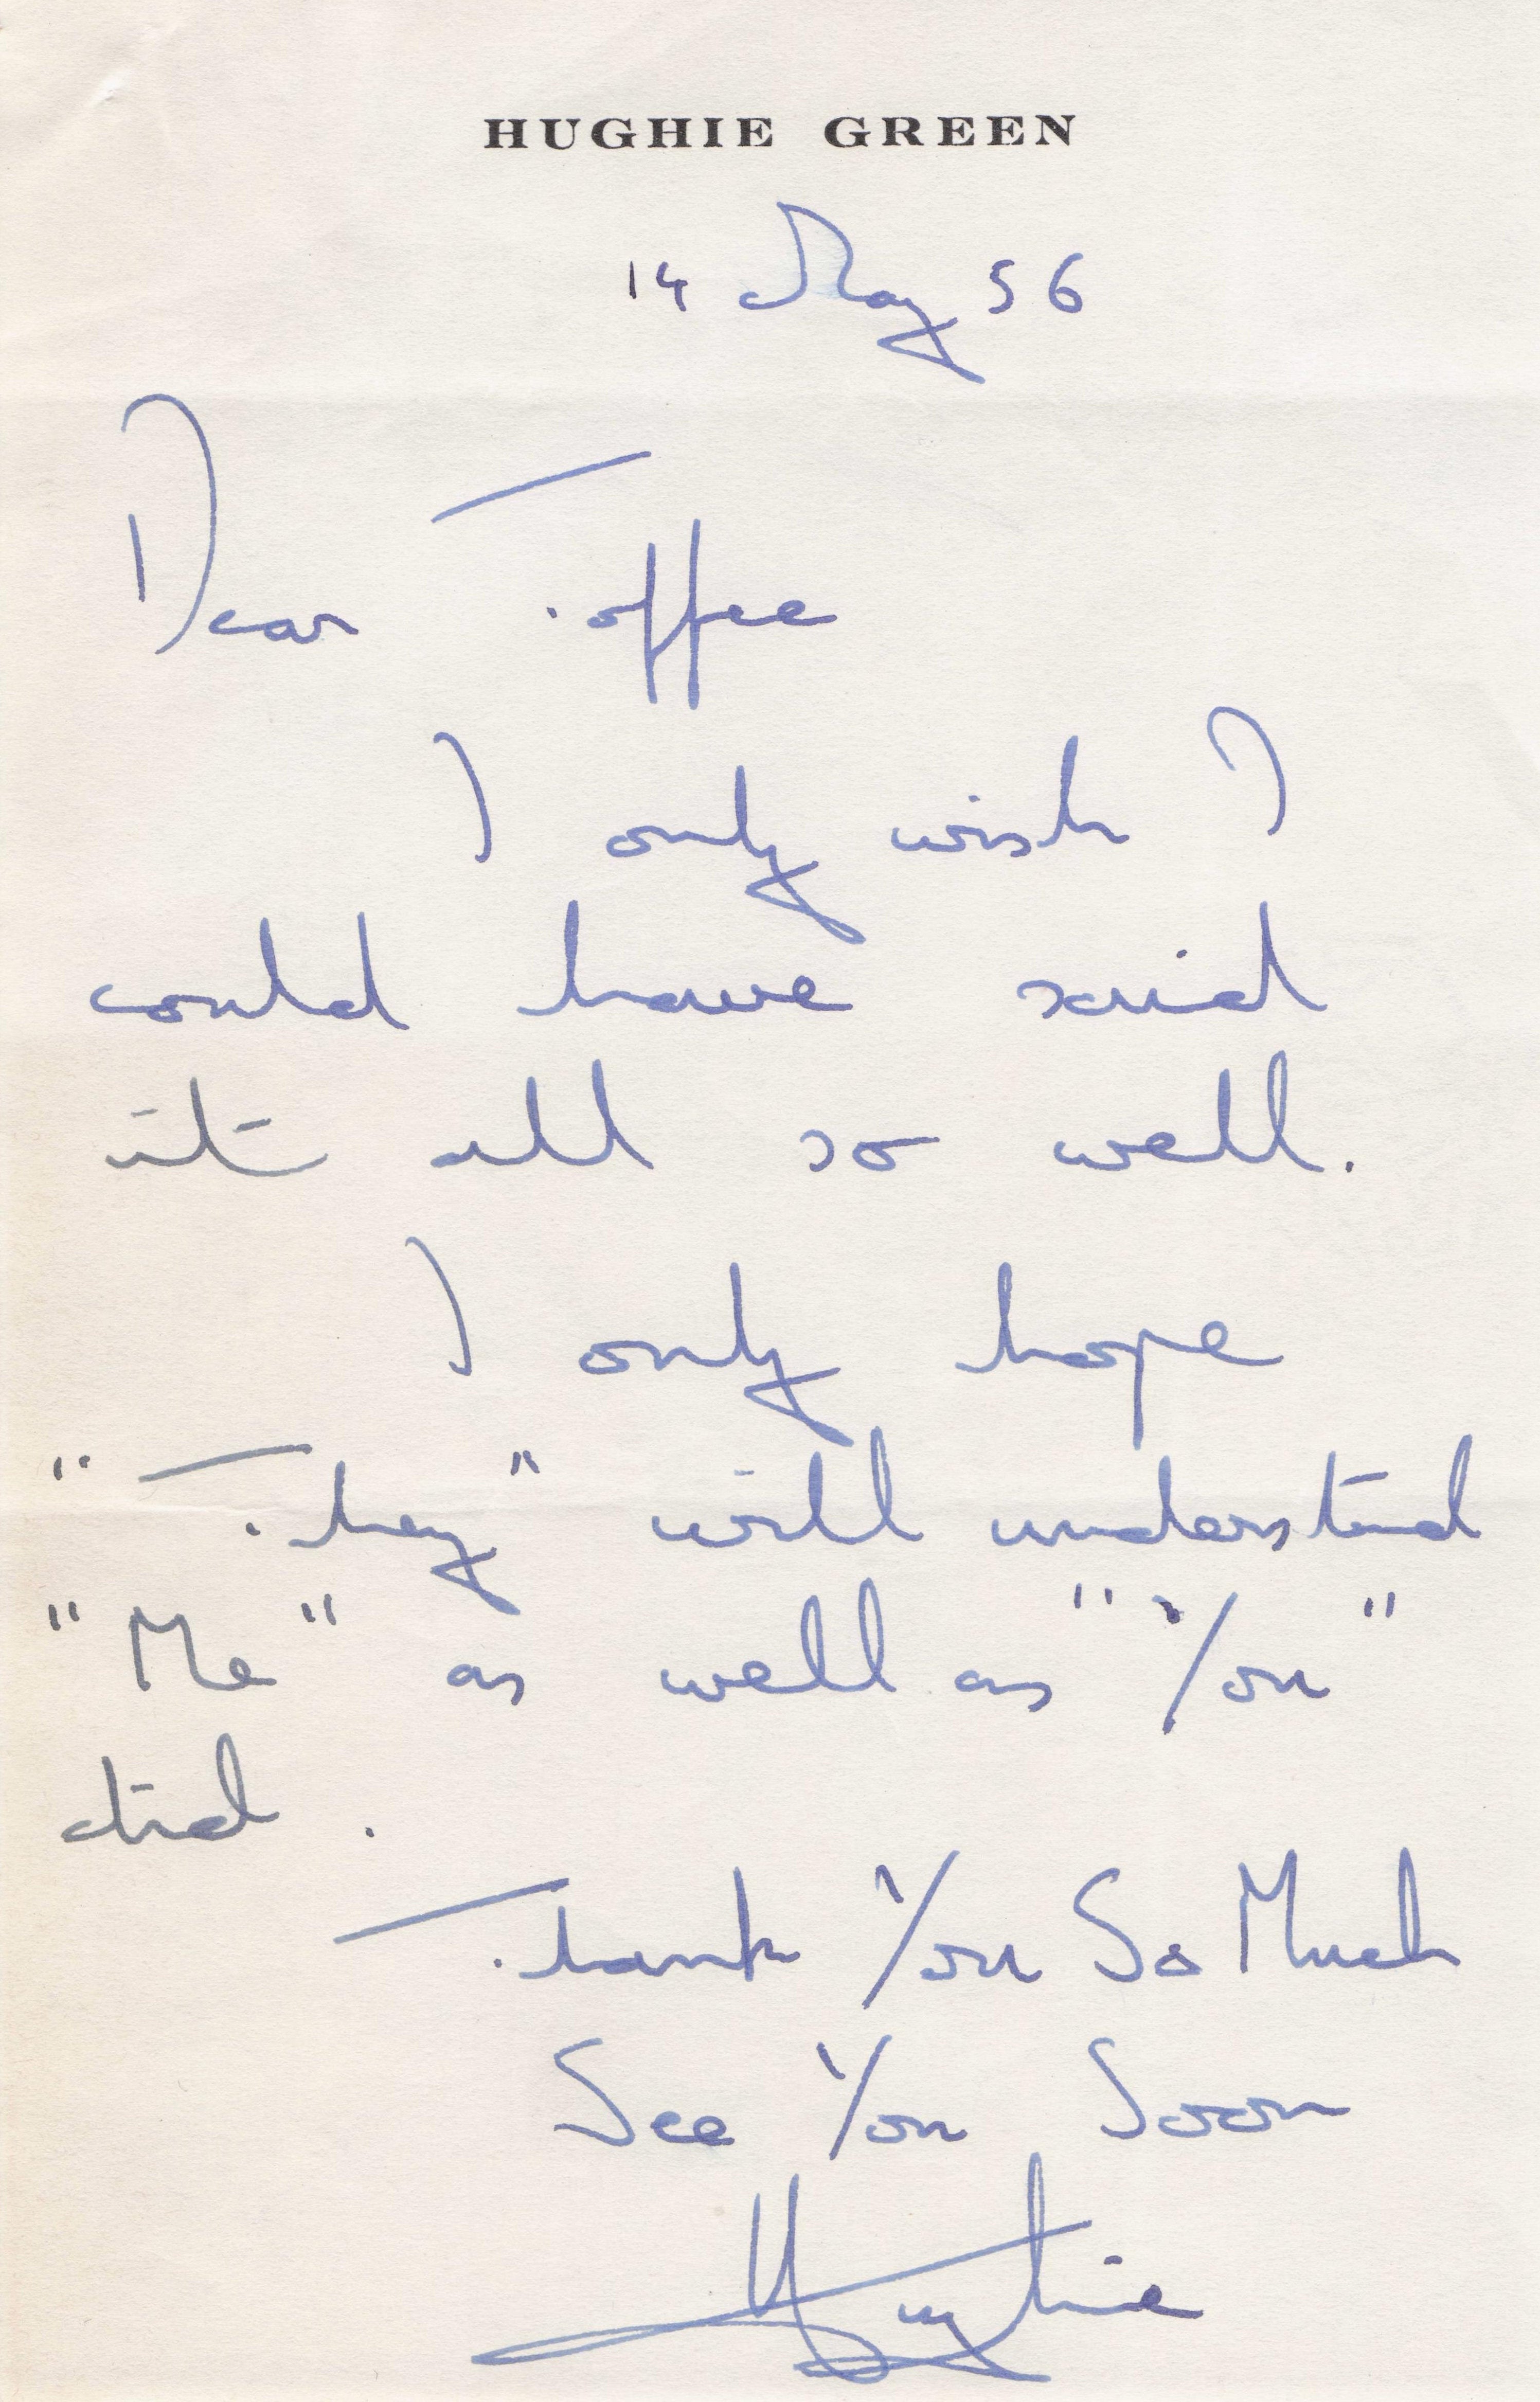 HUGHIE GREEN
14 May 56
Dear Toffee
I only wish I
could have said
it all so well.
I only hope
"They" will understand
"Me" as well as "You"
did.
Thank You So Much
See You Soon
Hughie